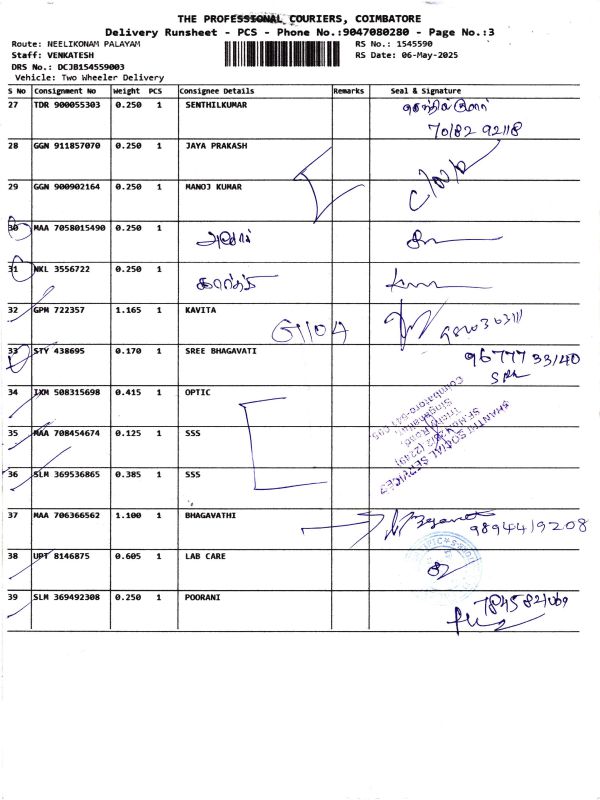 THE PROFESSSIONAL COURIERS, COIMBATORE
Delivery Runsheet - PCS - Phone No.:9047080280 - Page No.:3
Route: NEELIKONAM PALAYAM RS No.: 1545590
Staff: VENKATESH RS Date: 06-May-2025
DRS No.: DCJB154559003
Vehicle: Two Wheeler Delivery
S No Consignment No Weight PCS Consignee Details Remarks Seal & Signature
27 TDR 900055303 0.250 1 SENTHILKUMAR செந்தில்குமார்
70182 92118
28 GGN 911857070 0.250 1 JAYA PRAKASH
29 GGN 900902164 0.250 1 MANOJ KUMAR
30 MAA 7058015490 0.250 1
31 NKL 3556722 0.250 1
32 GPM 722357 1.165 1 KAVITA
G110A
33 STY 438695 0.170 1 SREE BHAGAVATI 96777 33140
34 IXM 508315698 0.415 1 OPTIC
35 MAA 708454674 0.125 1 SSS
36 SLM 369536865 0.385 1 SSS
SHANTHI SOCIAL SERVICES
Trichy Road,
Singanallur,
Coimbatore-641 005.
37 MAA 706366562 1.100 1 BHAGAVATHI
9894419208
38 UPT 8146875 0.605 1 LAB CARE
39 SLM 369492308 0.250 1 POORANI